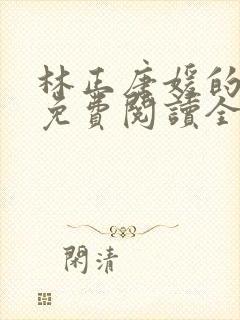 林正唐媛的
免費閱讀全
閑清